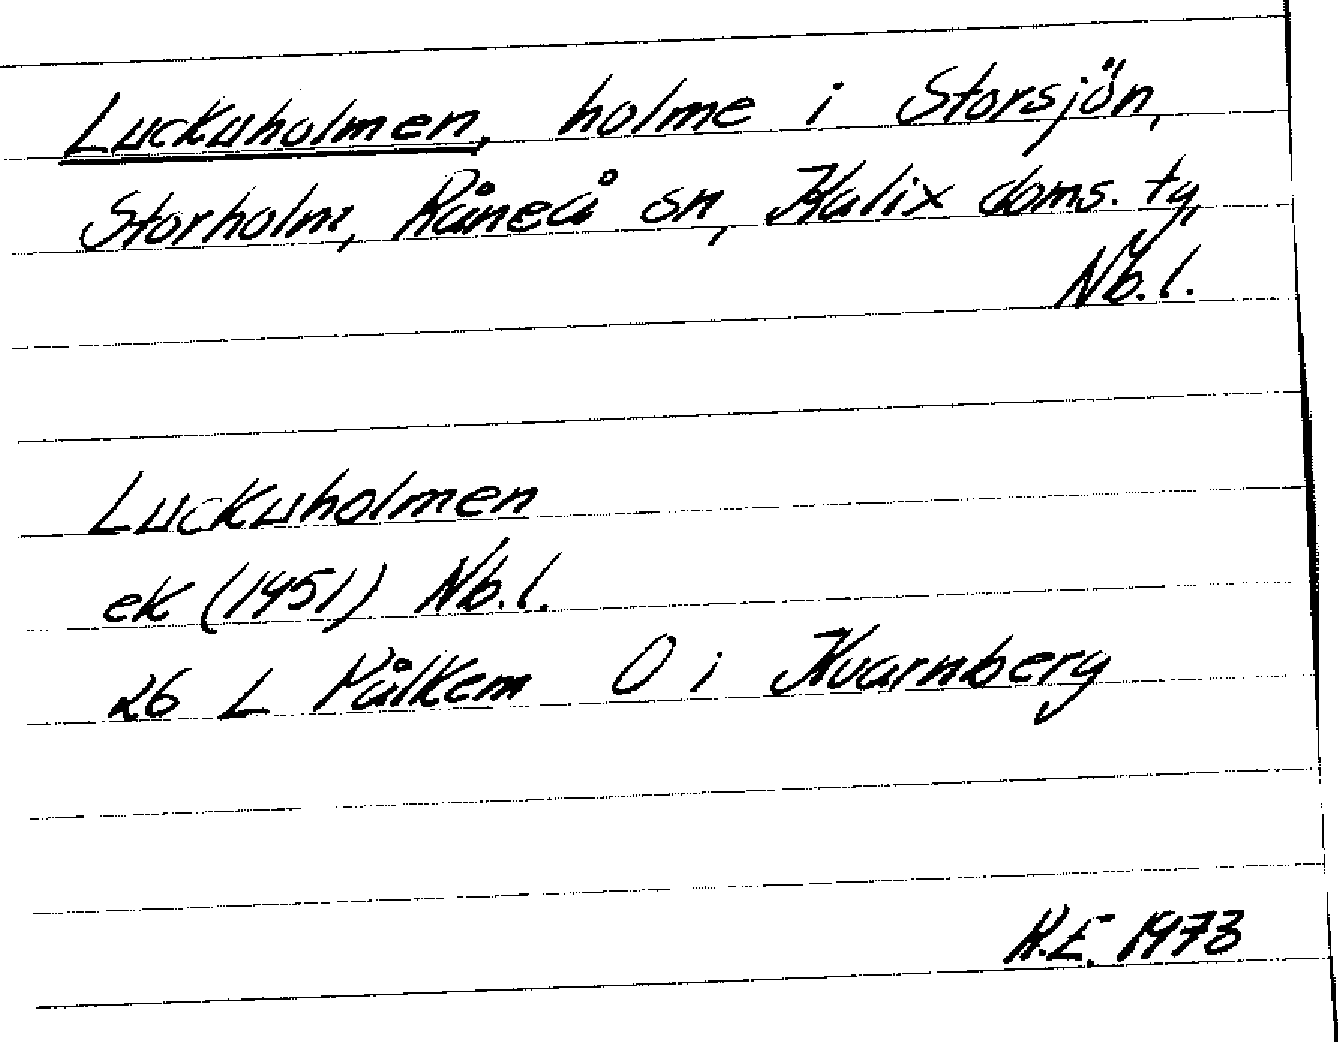 Luckuholmen, holme i Storsjön,
Storholm, Råneå sn, Kalix doms. tg,
Nb.l.
Luckuholmen
ek (1951) Nb.l.
26 L Pålkem O i Kvarnberg
K.E. 1973